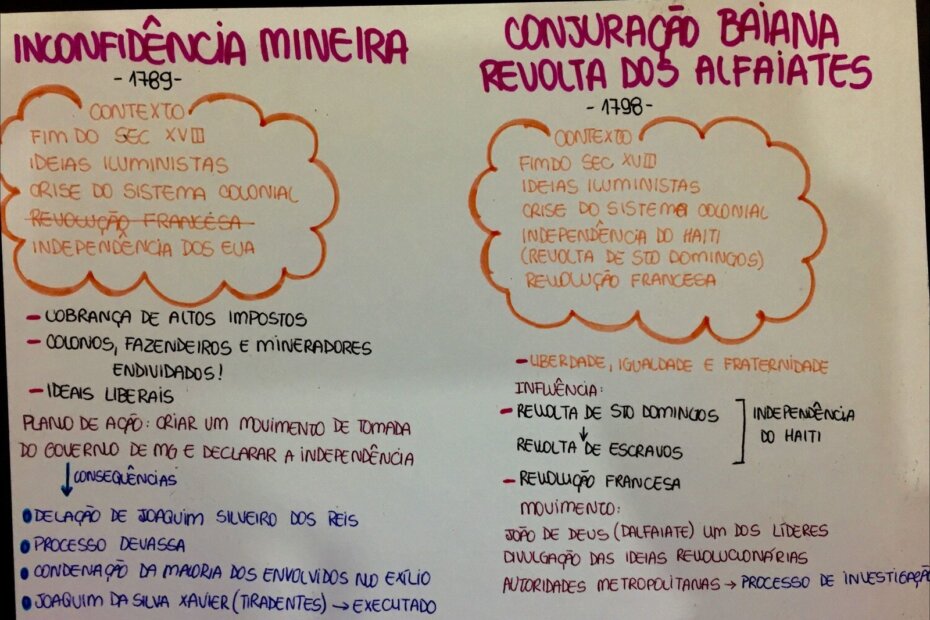 INCONFIDÊNCIA MINEIRA
- 1789 -
CONTEXTO
FIM DO SEC XVIII
IDEIAS ILUMINISTAS
CRISE DO SISTEMA COLONIAL
REVOLUÇÃO FRANCESA
INDEPENDÊNCIA DOS EUA
- COBRANÇA DE ALTOS IMPOSTOS
- COLONOS, FAZENDEIROS E MINERADORES
ENDIVIDADOS!
- IDEAIS LIBERAIS
PLANO DE AÇÃO: CRIAR UM MOVIMENTO DE TOMADA
DO GOVERNO DE MG E DECLARAR A INDEPENDÊNCIA
↓ CONSEQUÊNCIAS
• DELAÇÃO DE JOAQUIM SILVEIRO DOS REIS
• PROCESSO DEVASSA
• CONDENAÇÃO DA MAIORIA DOS ENVOLVIDOS NO EXÍLIO
• JOAQUIM DA SILVA XAVIER (TIRADENTES) → EXECUTADO
CONJURAÇÃO BAIANA
REVOLTA DOS ALFAIATES
- 1798 -
CONTEXTO
FIM DO SEC XVIII
IDEIAS ILUMINISTAS
CRISE DO SISTEMA COLONIAL
INDEPENDÊNCIA DO HAITI
(REVOLTA DE STO DOMINGOS)
REVOLUÇÃO FRANCESA
- LIBERDADE, IGUALDADE E FRATERNIDADE
INFLUÊNCIA:
- REVOLTA DE STO DOMINGOS
↓
REVOLTA DE ESCRAVOS
INDEPENDÊNCIA
DO HAITI
- REVOLUÇÃO FRANCESA
MOVIMENTO:
JOÃO DE DEUS (DALFAIATE) UM DOS LÍDERES
DIVULGAÇÃO DAS IDEIAS REVOLUCIONÁRIAS
AUTORIDADES METROPOLITANAS → PROCESSO DE INVESTIGAÇÃO